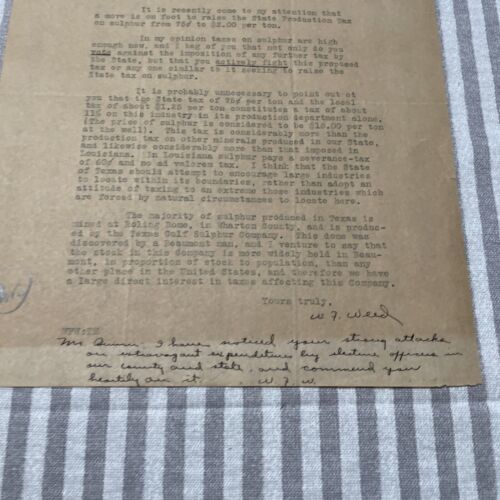 It is recently come to my attention that
a move is on foot to raise the State Production Tax
on sulphur from 75¢ to $2.00 per ton.
In my opinion taxes on sulphur are high
enough now, and I beg of you that not only do you
vote against the imposition of any further tax by
the State, but that you actively fight this proposed
tax or any one similar to it seeking to raise the
State tax on sulphur.
It is probably unnecessary to point out to
you that the State tax of 75¢ per ton and the local
tax of about $1.25 per ton constitutes a tax of about
11% on this industry in its production department alone.
(The price of sulphur is considered to be $18.00 per ton
at the well). This tax is considerably more than the
production tax on other minerals produced in our State,
and likewise considerably more than that imposed in
Louisiana. In Louisiana sulphur pays a severance-tax
of 60¢ and no ad valorem tax. I think that the State
of Texas should attempt to encourage large industries
to locate within its boundaries, rather than adopt an
attitude of taxing to an extreme those industries which
are forced by natural circumstances to locate here.
The majority of sulphur produced in Texas is
mined at Boling Dome, in Wharton County, and is produc-
ed by the Texas Gulf Sulphur Company. This dome was
discovered by a Beaumont man, and I venture to say that
the stock in this Company is more widely held in Beau-
mont, in proportion of stock to population, than any
other place in the United States, and therefore we have
a large direct interest in taxes affecting this Company.
Yours truly,
W. F. Weed
WFW:IE
Mr. Quinn, I have noticed your strong attacks
on extravagant expenditures by elective offices in
our county and state, and commend you
heartily on it. W. F. W.